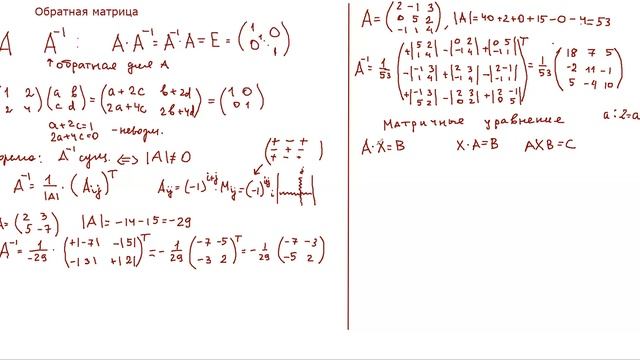 Обратная матрица
A A⁻¹ : A·A⁻¹=A⁻¹·A=E=(1 0 / 0 1)
↑обратная для A
1 2 / 2 4) (a b / c d) = (a+2c b+2d / 2a+4c 2b+4d) = (1 0 / 0 1)
a+2c=1
2a+4c=0 -невозм.
A⁻¹ сущ. ⟺ |A|≠0 (+ - + / - + - / + - ...)
A⁻¹ = 1/|A| · (Aᵢⱼ)ᵀ Aᵢⱼ=(-1)ⁱ⁺ʲ·Mᵢⱼ=(-1)ⁱʲ
A=(2 3 / 5 -7) |A|=-14-15=-29
A⁻¹=1/-29 · (+|-7| -|5| / -|3| +|2|)ᵀ = -1/29 (-7 -5 / -3 2)ᵀ = -1/29 (-7 -3 / -5 2)
A=(2 -1 3 / 0 5 2 / -1 1 4), |A|=40+2+0+15-0-4=53
A⁻¹=1/53 (+|5 2 / 1 4| -|0 2 / -1 4| +|0 5 / -1 1| / -|-1 3 / 1 4| +|2 3 / -1 4| -|2 -1 / -1 1| / +|-1 3 / 5 2| -|2 3 / 0 2| +|2 -1 / 0 5|)ᵀ = 1/53 (18 7 5 / -2 11 -1 / 5 -4 10)
a:2=a
Матричные уравнение
A·X=B X·A=B AXB=C